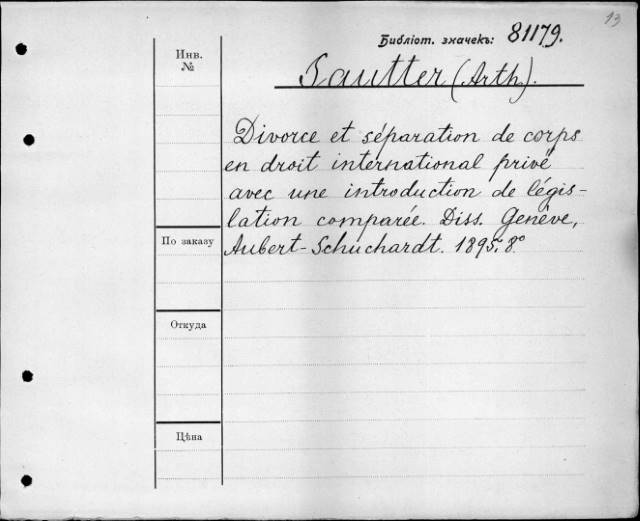 13
Библіот. значекъ: 81179.
Инв.
№
Sautter (Arth.).
Divorce et séparation de corps
en droit international privé
avec une introduction de légis-
lation comparée. Diss. Genève,
По заказу
Aubert-Schuchardt. 1895. 8°
Откуда
Цѣна